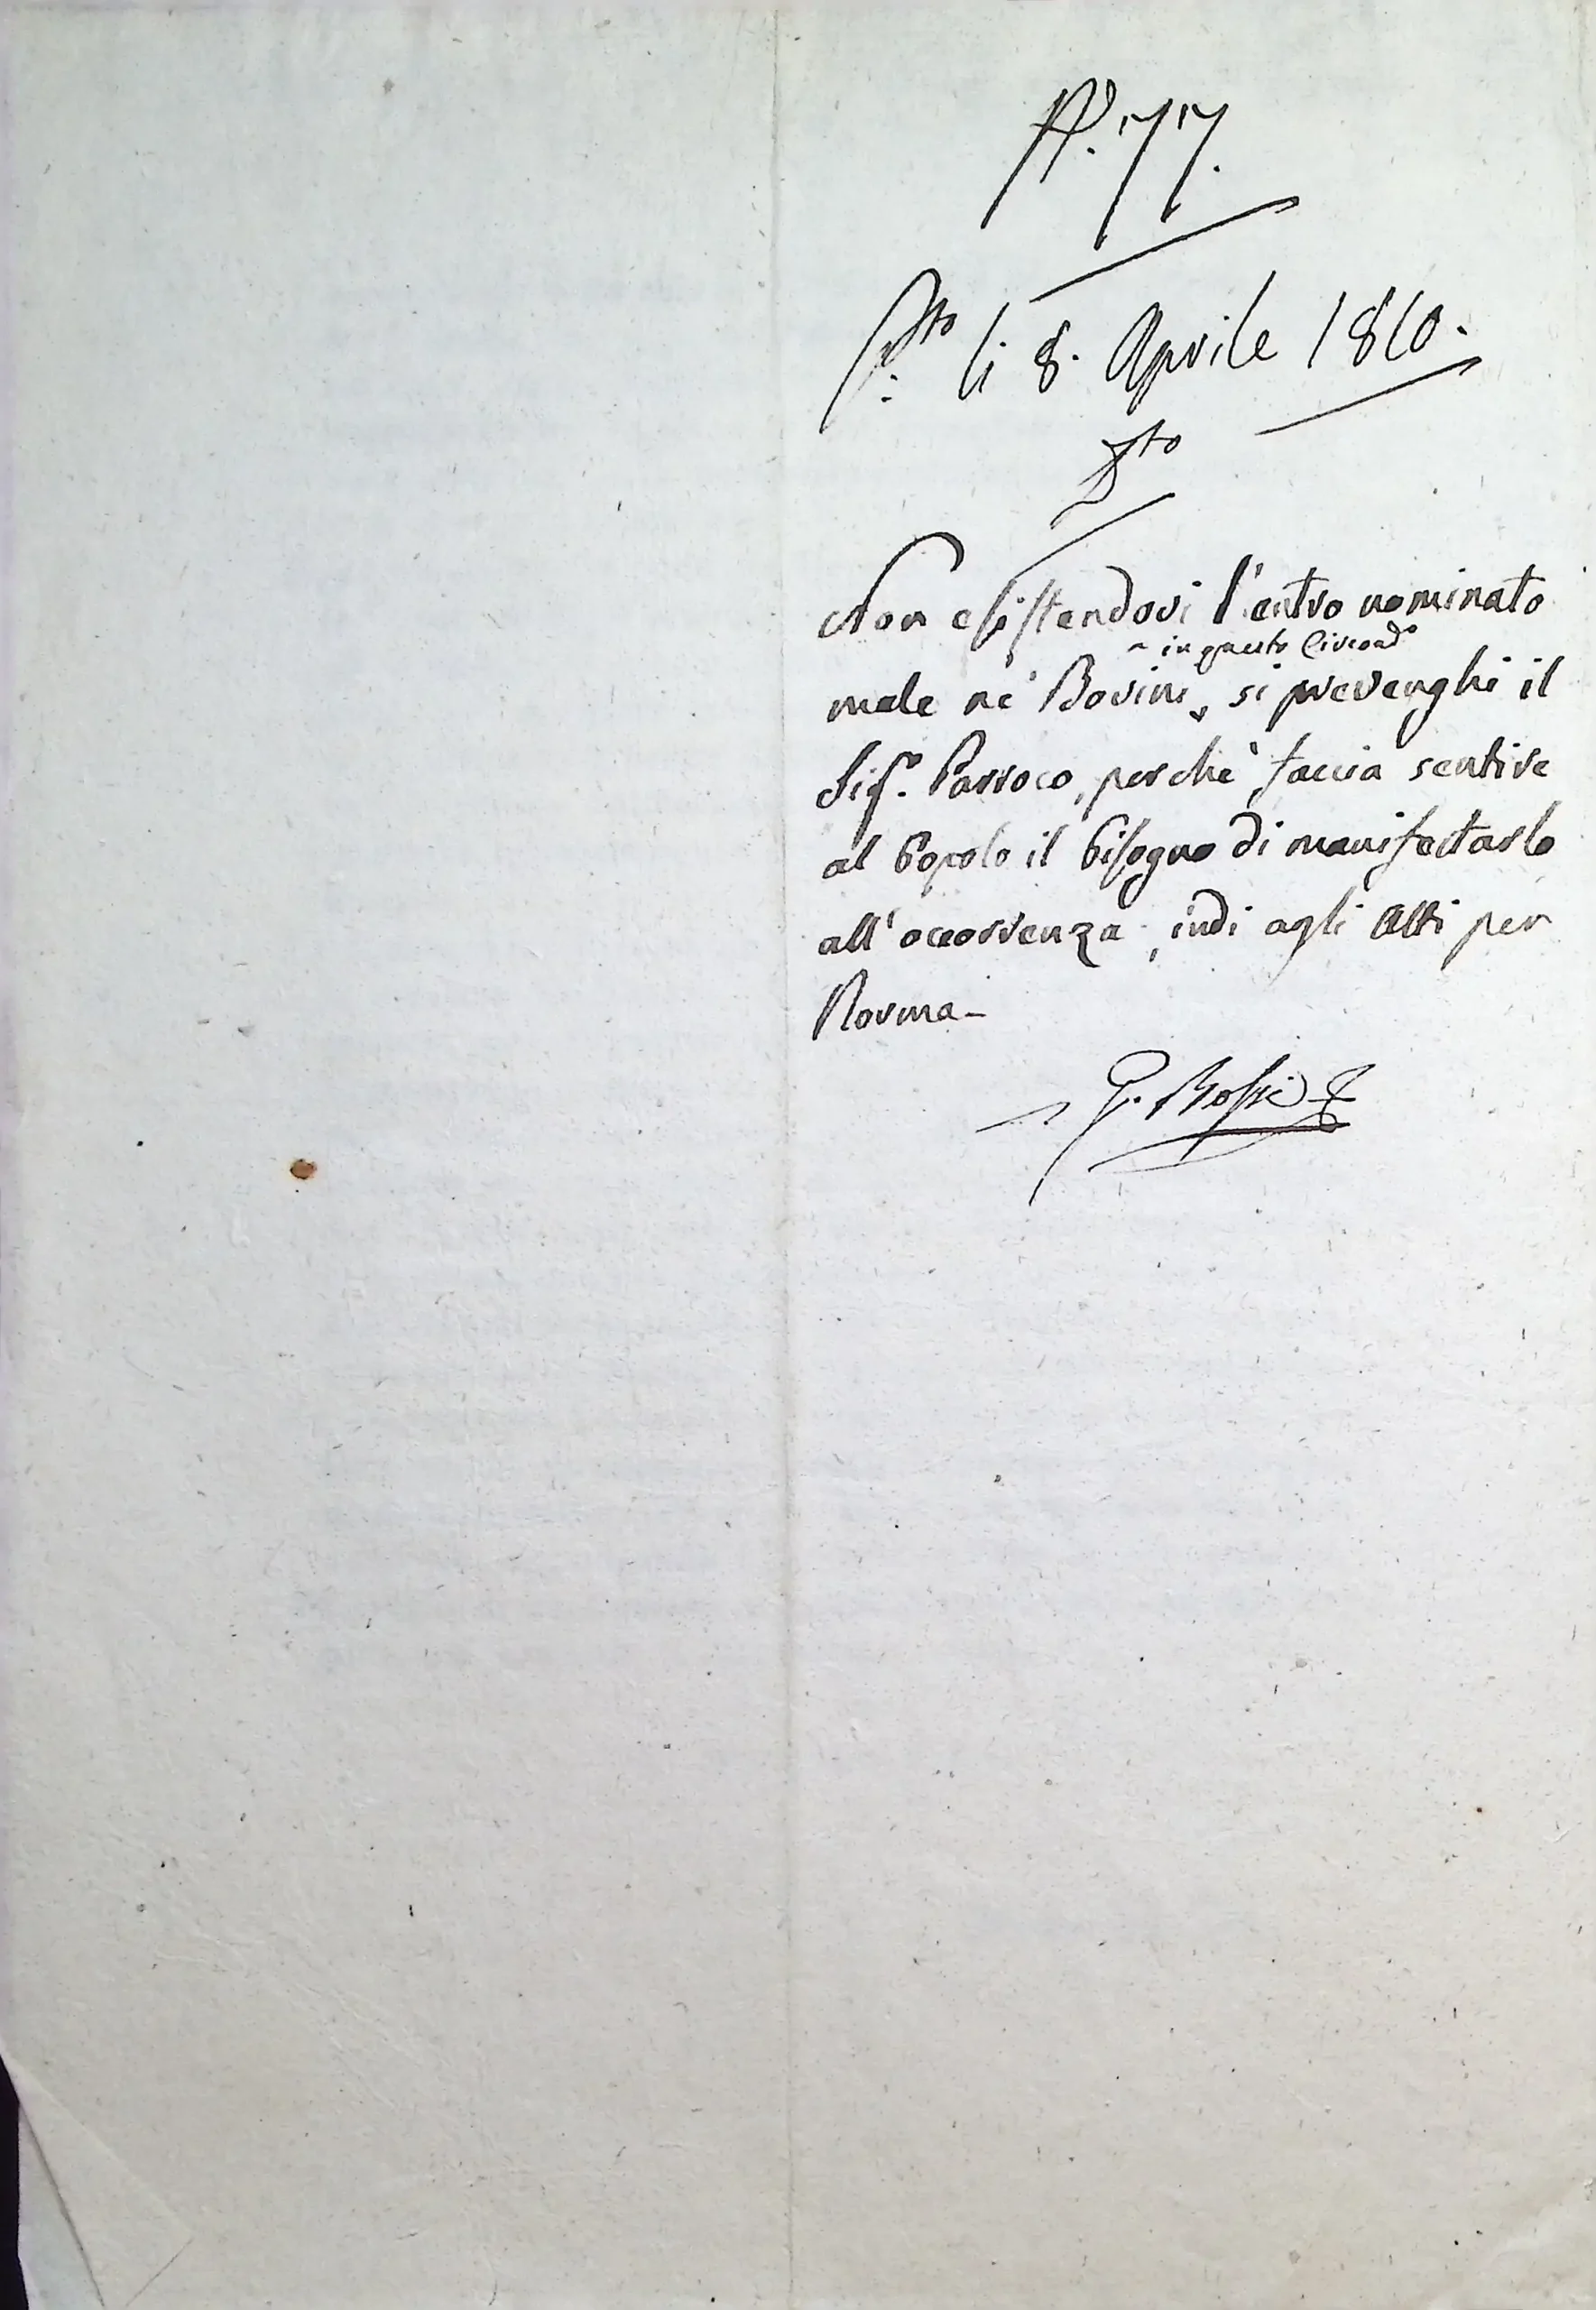 N.° 77.
P.to li 8. Aprile 1810.
D.to
Non esistendovi l'entro nominato
in questo Circond.o
male nè Bovini, si prevenghi il
Sig.r Parroco, perchè faccia sentire
al Popolo il bisogno di manifestarlo
all'occorrenza, indi agli Atti per
Norma-
G. Rossi